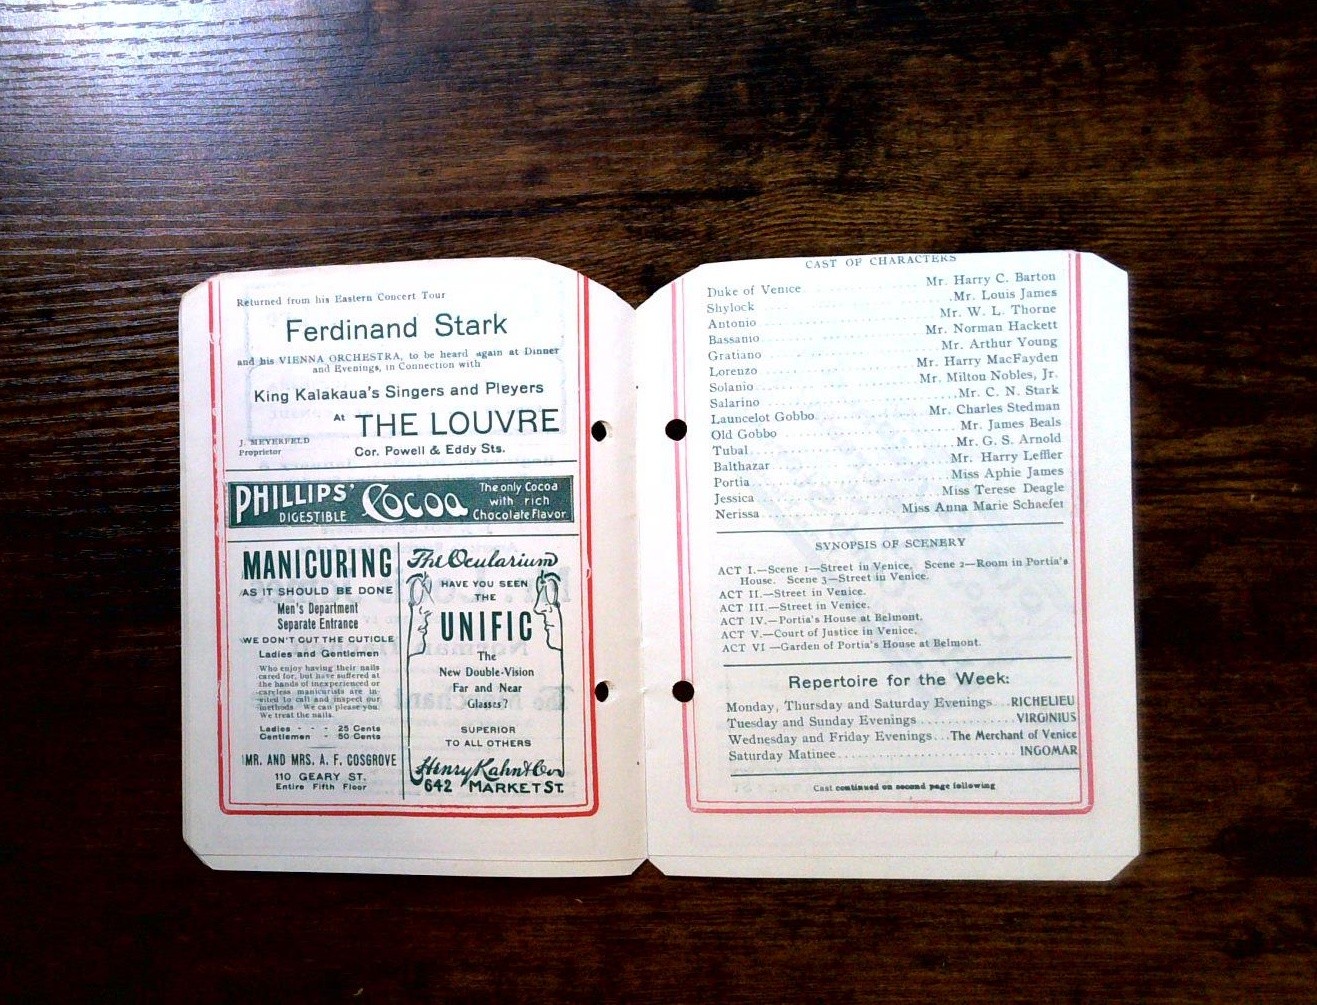 Returned from his Eastern Concert Tour
Ferdinand Stark
and his VIENNA ORCHESTRA, to be heard again at Dinner
and Evenings, in Connection with
King Kalakaua's Singers and Players
At THE LOUVRE
J. MEYERFELD
Proprietor
Cor. Powell & Eddy Sts.
PHILLIPS' DIGESTIBLE Cocoa
The only Cocoa
with rich
Chocolate Flavor.
MANICURING
AS IT SHOULD BE DONE
Men's Department
Separate Entrance
WE DON'T CUT THE CUTICLE
Ladies and Gentlemen
Who enjoy having their nails
cared for, but have suffered at
the hands of inexperienced or
careless manicurists are in-
vited to call and inspect our
methods. We can please you.
We treat the nails.
Ladies - - - 25 Cents
Gentlemen - 50 Cents
MR. AND MRS. A. F. COSGROVE
110 GEARY ST.
Entire Fifth Floor
The Ocularium
HAVE YOU SEEN
THE
UNIFIC
The
New Double-Vision
Far and Near
Glasses?
SUPERIOR
TO ALL OTHERS
Henry Kahn & Co.
642 MARKET ST.
CAST OF CHARACTERS
Duke of Venice Mr. Harry C. Barton
Shylock Mr. Louis James
Antonio Mr. W. L. Thorne
Bassanio Mr. Norman Hackett
Gratiano Mr. Arthur Young
Lorenzo Mr. Harry MacFayden
Solanio Mr. Milton Nobles, Jr.
Salarino Mr. C. N. Stark
Launcelot Gobbo Mr. Charles Stedman
Old Gobbo Mr. James Beals
Tubal Mr. G. S. Arnold
Balthazar Mr. Harry Leffler
Portia Miss Aphie James
Jessica Miss Terese Deagle
Nerissa Miss Anna Marie Schaefer
SYNOPSIS OF SCENERY
ACT I.—Scene 1—Street in Venice. Scene 2—Room in Portia's
House. Scene 3—Street in Venice.
ACT II.—Street in Venice.
ACT III.—Street in Venice.
ACT IV.—Portia's House at Belmont.
ACT V.—Court of Justice in Venice.
ACT VI —Garden of Portia's House at Belmont.
Repertoire for the Week:
Monday, Thursday and Saturday Evenings...RICHELIEU
Tuesday and Sunday Evenings.............VIRGINIUS
Wednesday and Friday Evenings...The Merchant of Venice
Saturday Matinee..........................INGOMAR
Cast continued on second page following